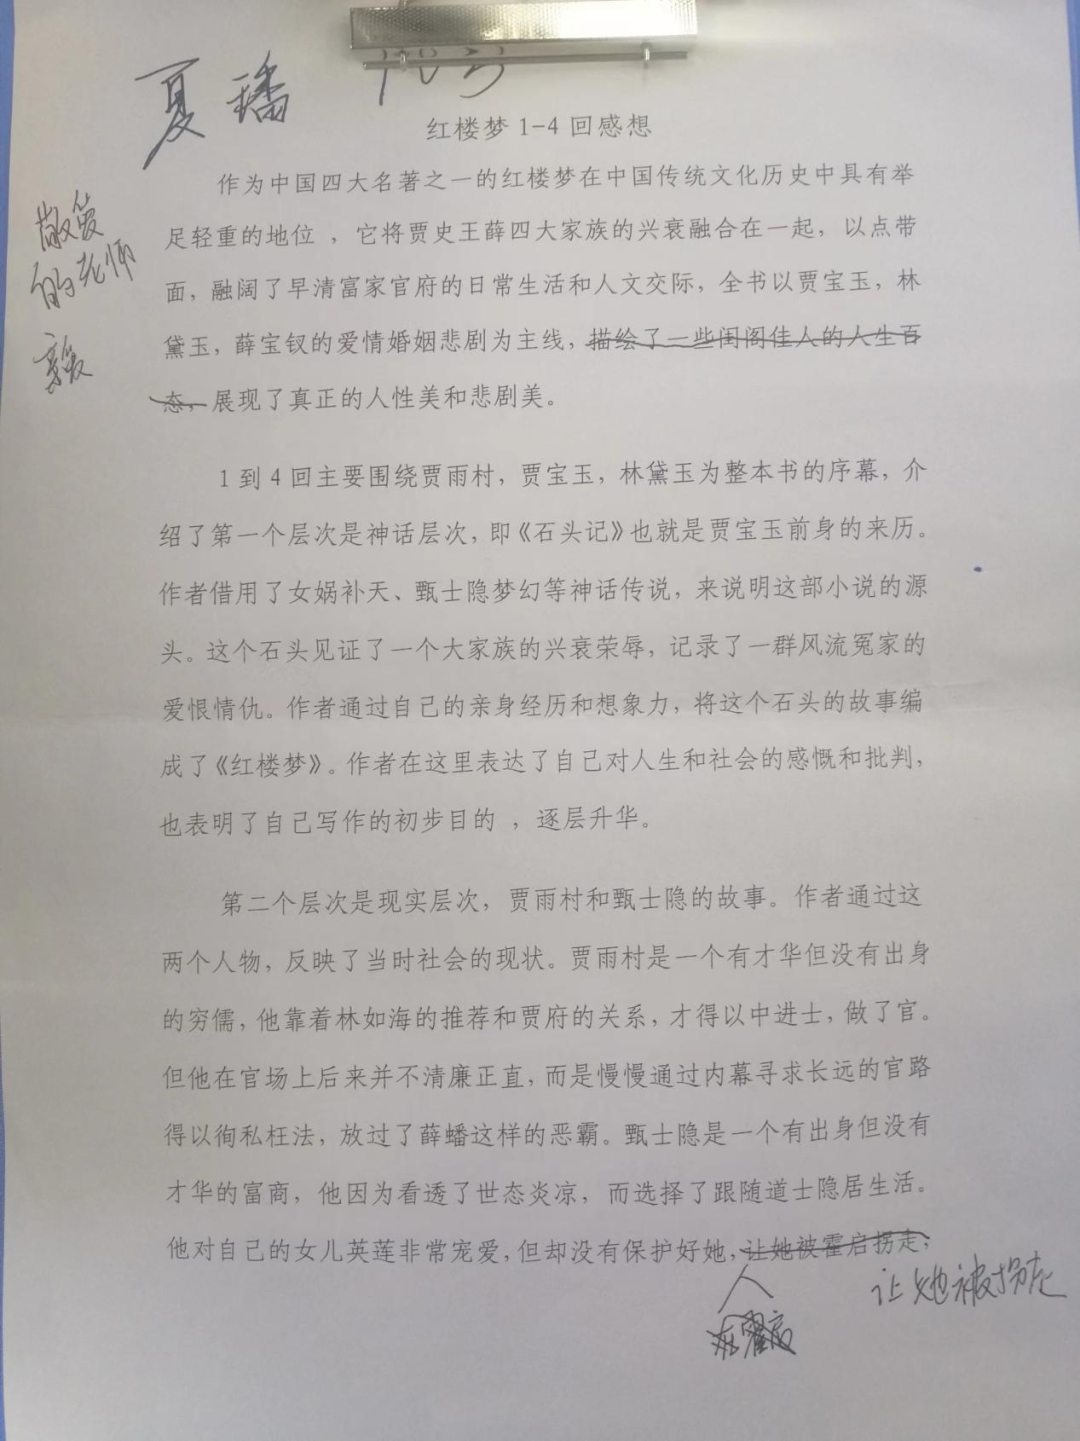 夏璠
红楼梦 1-4 回感想
敬爱
的老师
亲爱
作为中国四大名著之一的红楼梦在中国传统文化历史中具有举
足轻重的地位 ，它将贾史王薛四大家族的兴衰融合在一起，以点带
面，融阔了早清富家官府的日常生活和人文交际，全书以贾宝玉，林
黛玉，薛宝钗的爱情婚姻悲剧为主线，描绘了一些闺阁佳人的人生百
态，展现了真正的人性美和悲剧美。
1 到 4 回主要围绕贾雨村，贾宝玉，林黛玉为整本书的序幕，介
绍了第一个层次是神话层次，即《石头记》也就是贾宝玉前身的来历。
作者借用了女娲补天、甄士隐梦幻等神话传说，来说明这部小说的源
头。这个石头见证了一个大家族的兴衰荣辱，记录了一群风流冤家的
爱恨情仇。作者通过自己的亲身经历和想象力，将这个石头的故事编
成了《红楼梦》。作者在这里表达了自己对人生和社会的感慨和批判，
也表明了自己写作的初步目的 ，逐层升华。
第二个层次是现实层次，贾雨村和甄士隐的故事。作者通过这
两个人物，反映了当时社会的现状。贾雨村是一个有才华但没有出身
的穷儒，他靠着林如海的推荐和贾府的关系，才得以中进士，做了官。
但他在官场上后来并不清廉正直，而是慢慢通过内幕寻求长远的官路
得以徇私枉法，放过了薛蟠这样的恶霸。甄士隐是一个有出身但没有
才华的富商，他因为看透了世态炎凉，而选择了跟随道士隐居生活。
他对自己的女儿英莲非常宠爱，但却没有保护好她，让她被霍启拐走；
人
让她被拐走
霍启